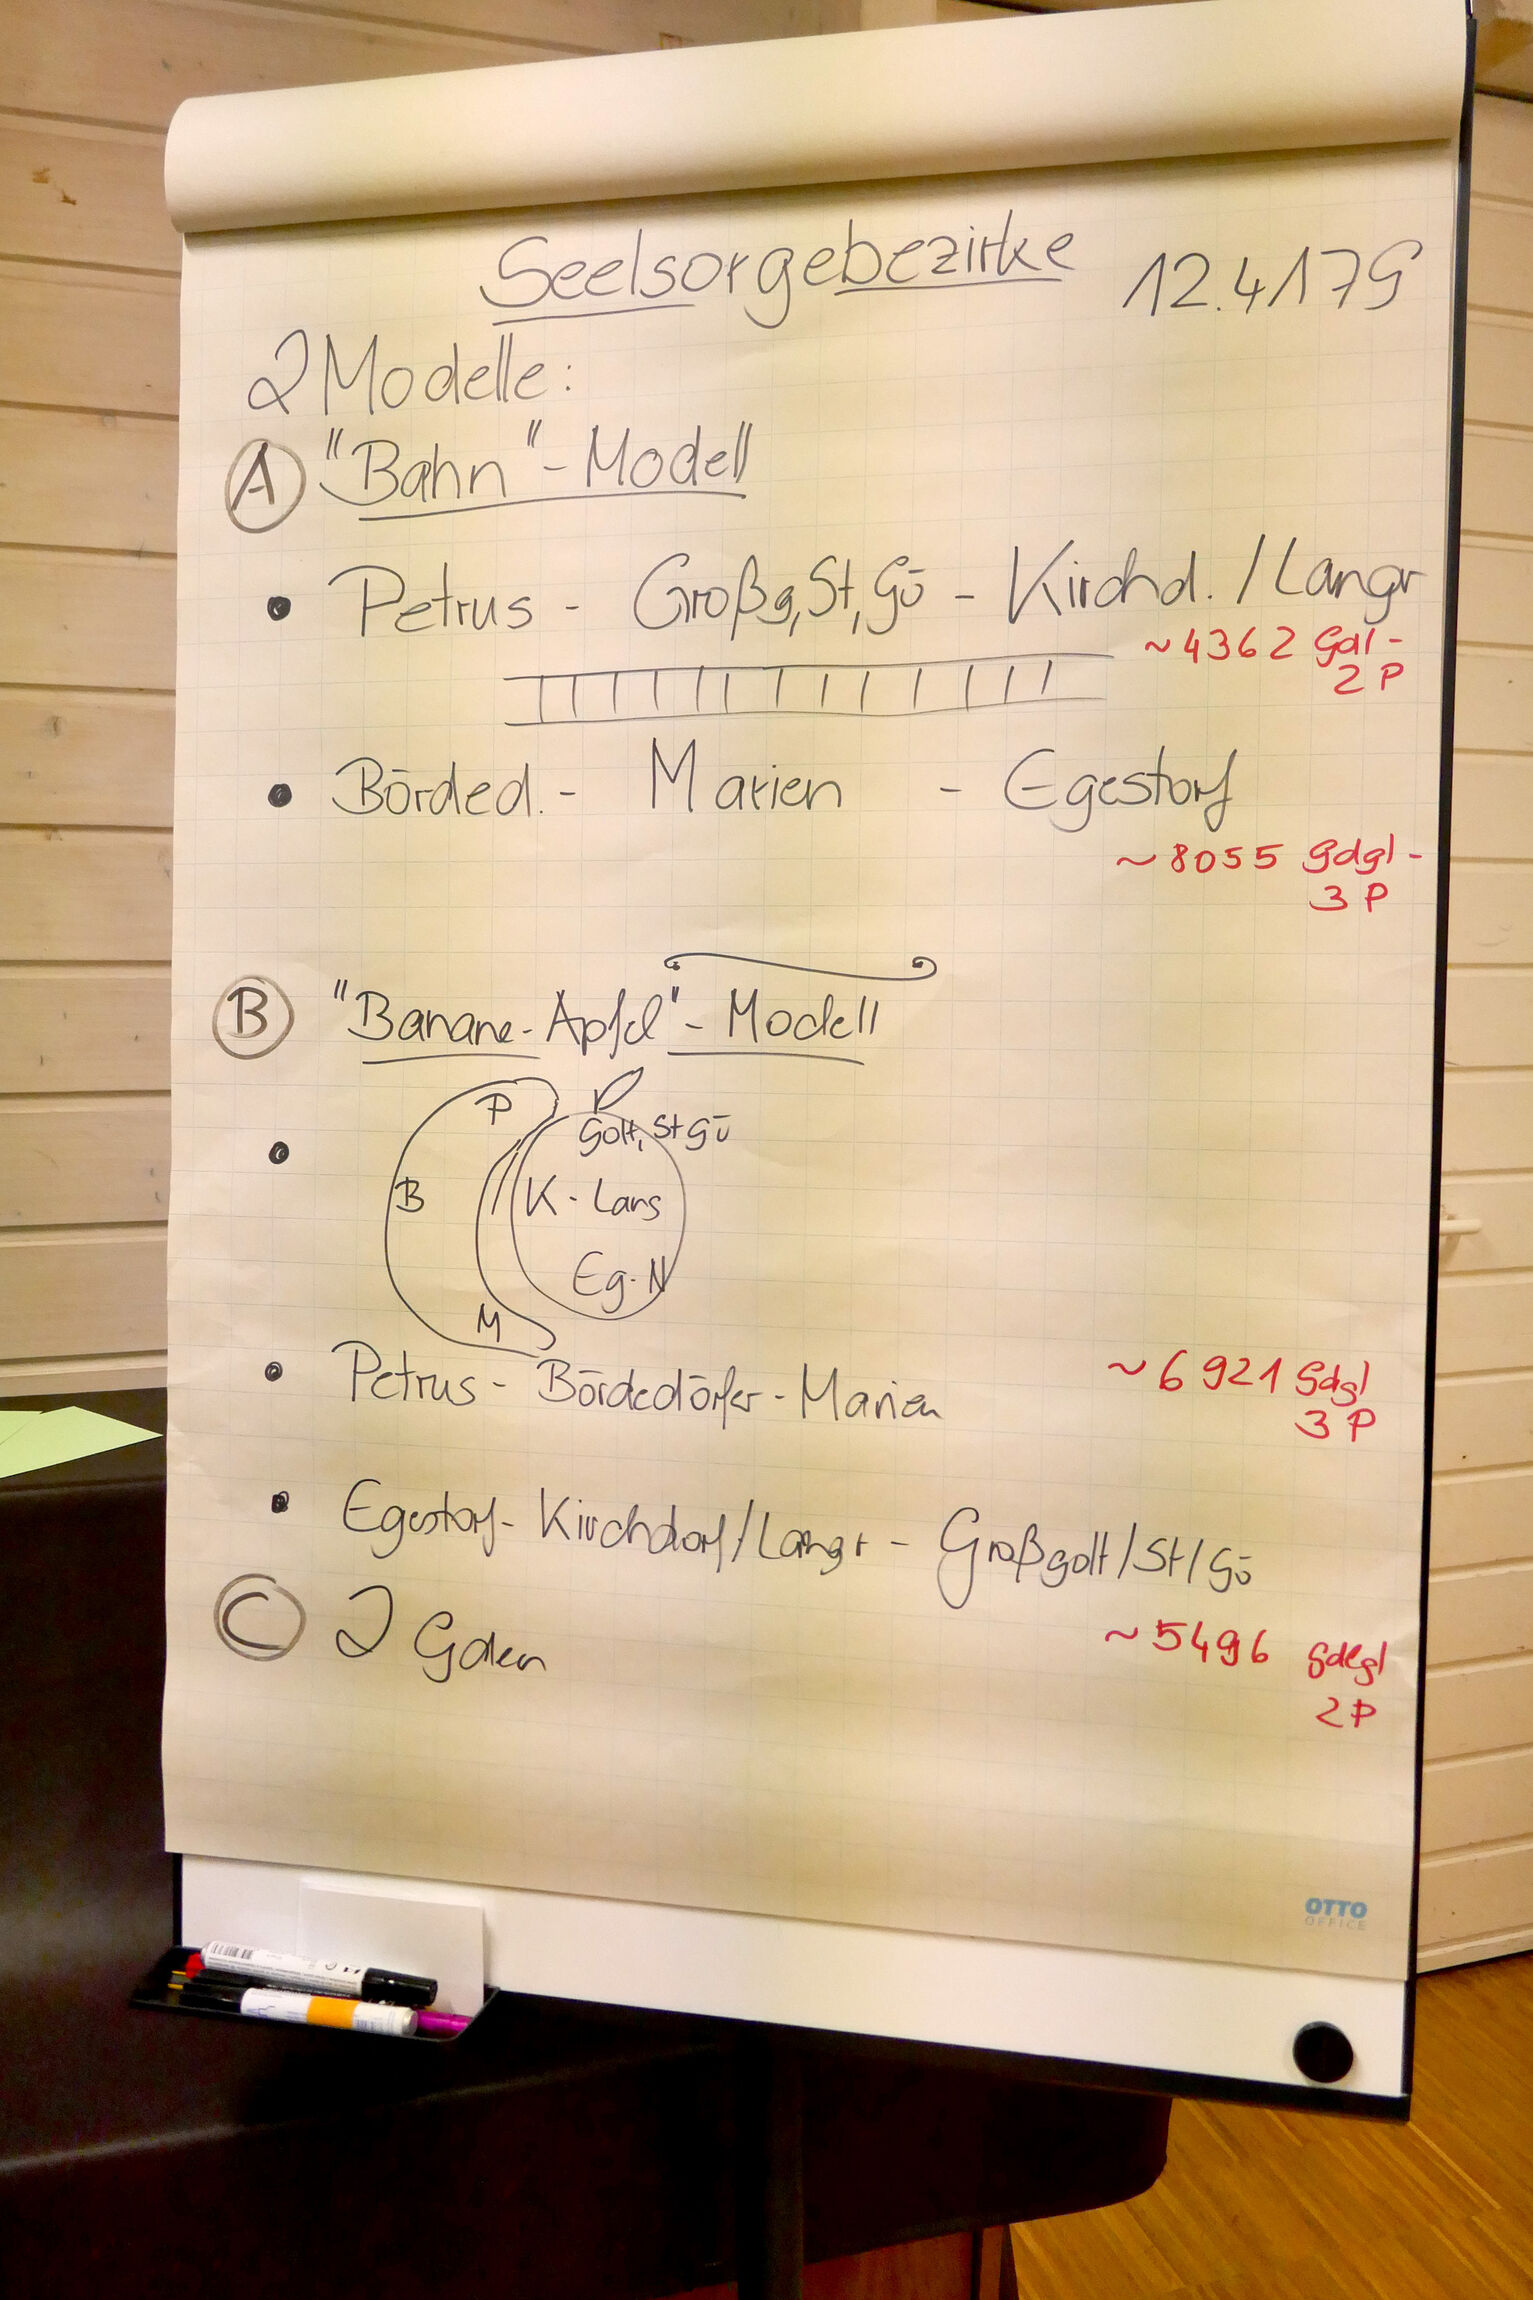 Seelsorgebezirke 12.4179
2 Modelle:
A "Bahn"-Modell
• Petrus - Großg, St, Gö - Kirchd. / Langr
~4362 Gdl -
2 P
• Börded. - Marien - Egestorf
~8055 Gdgl -
3 P
B "Banane-Apfel"-Modell
P
Golt, St Gö
B
K - Lang
Eg - N
M
• Petrus - Bördedörfer - Marien
~6921 Gdgl
3 P
• Egestorf - Kirchdorf/Langr - Großgolt/St/Gö
~5496 Gdegl
2 P
C 2 Gden
OTTO
OFFICE